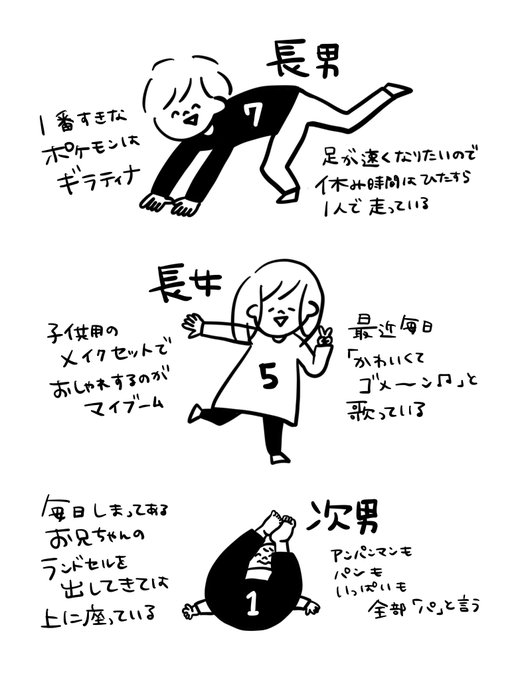 長男
1番すきな
ポケモンは
ギラティナ
7
足が速くなりたいので
休み時間はひたすら
1人で走っている
長女
子供用の
メイクセットで
おしゃれするのが
マイブーム
5
最近毎日
「かわいくて
ゴメ〜ン♫」と
歌っている
次男
毎日しまってある
お兄ちゃんの
ランドセルを
出してきては
上に座っている
1
アンパンマンも
パンも
いっぱいも
全部「パ」と言う